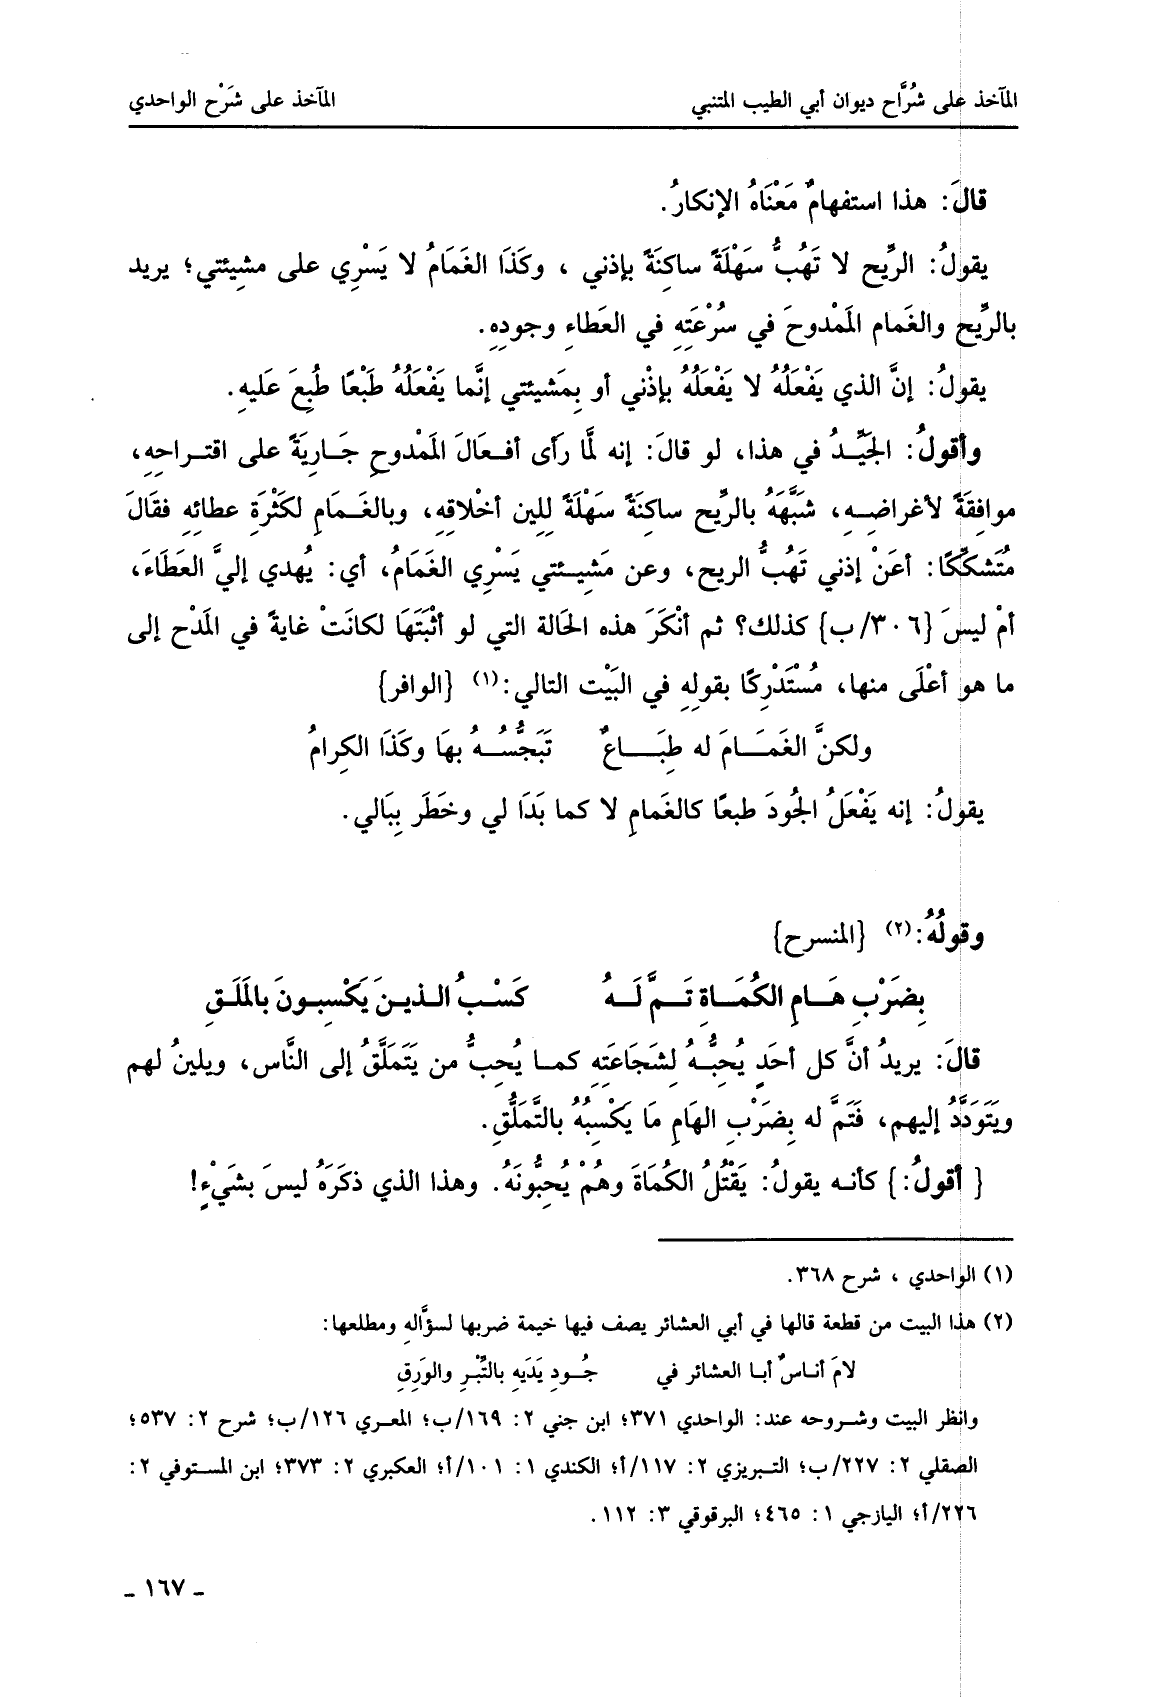 المآخذ على شُرَّاح ديوان أبي الطيب المتنبي المآخذ على شَرْح الواحدي
قالَ: هذا استفهامٌ مَعْنَاهُ الإنكارُ.
يقولُ: الرِّيح لا تَهُبُّ سَهْلَةً ساكِنَةً بإذني ، وكَذَا الغَمَامُ لا يَسْرِي على مشيئتي؛ يريد
بالرِّيح والغَمام المَمْدوحَ في سُرْعَتِهِ في العَطاءِ وجودِهِ.
يقولُ: إنَّ الذي يَفْعَلُهُ لا يَفْعَلُهُ بإذْني أو بِمَشيئتي إنَّما يَفْعَلُهُ طَبْعًا طُبِعَ عَليهِ.
وأقولُ: الجَيِّدُ في هذا، لو قالَ: إنه لمَّا رَأى أفعَالَ المَمْدوحِ جَارِيَةً على اقتراحِهِ،
موافِقَةً لأغراضِهِ، شَبَّهَهُ بالرِّيح ساكِنَةً سَهْلَةً لِلِين أخْلاقِهِ، وبالغَمامِ لكَثْرَةِ عطائِهِ فقَالَ
مُتَشكِّكًا: أعَنْ إذني تَهُبُّ الريح، وعن مَشيئتي يَسْرِي الغَمَامُ، أي: يُهدي إليَّ العَطَاءَ،
أمْ ليسَ {٣٠٦/ب} كذلك؟ ثم أنْكَرَ هذه الحَالة التي لو أثْبَتَهَا لكانَتْ غايةً في المَدْح إلى
ما هو أعْلَى منها، مُسْتَدْرِكًا بقولِهِ في البَيْت التالي:(١) {الوافر}
ولكنَّ الغَمَامَ له طِبَاعٌ تَبَجُّسُهُ بهَا وكَذَا الكِرامُ
يقولُ: إنه يَفْعَلُ الجُودَ طبعًا كالغَمامِ لا كما بَدَا لي وخَطَر بِبَالي.
وقولُهُ:(٢) {المنسرح}
بِضَرْبِ هَامِ الكُمَاةِ تَمَّ لَهُ كَسْبُ الذينَ يَكْسِبونَ بالمَلَقِ
قالَ: يريدُ أنَّ كل أحَدٍ يُحِبُّهُ لشَجَاعَتِهِ كما يُحِبُّ من يَتَمَلَّقُ إلى النَّاس، ويلينُ لهم
ويَتَوَدَّدُ إليهم، فَتَمَّ له بِضَرْبِ الهَامِ مَا يَكْسِبُهُ بالتَّمَلُّقِ.
{ أقولُ:} كأنه يقولُ: يَقْتُلُ الكُمَاةَ وهُمْ يُحِبُّونَهُ. وهذا الذي ذكَرَهُ ليسَ بشَيْءٍ!
(١) الواحدي ، شرح ٣٦٨.
(٢) هذا البيت من قطعة قالها في أبي العشائر يصف فيها خيمة ضربها لسؤَّاله ومطلعها:
لامَ أناسٌ أبا العشائر في جُودِ يَدَيهِ بالتِّبْرِ والوَرِقِ
وانظر البيت وشروحه عند: الواحدي ٣٧١؛ ابن جني ٢: ١٦٩/ب؛ المعري ١٢٦/ب؛ شرح ٢: ٥٣٧؛
الصقلي ٢: ٢٢٧/ب؛ التبريزي ٢: ١١٧/أ؛ الكندي ١: ١٠١/أ؛ العكبري ٢: ٣٧٣؛ ابن المستوفي ٢:
٢٢٦/أ؛ اليازجي ١: ٤٦٥؛ البرقوقي ٣: ١١٢.
ـ ١٦٧ ـ